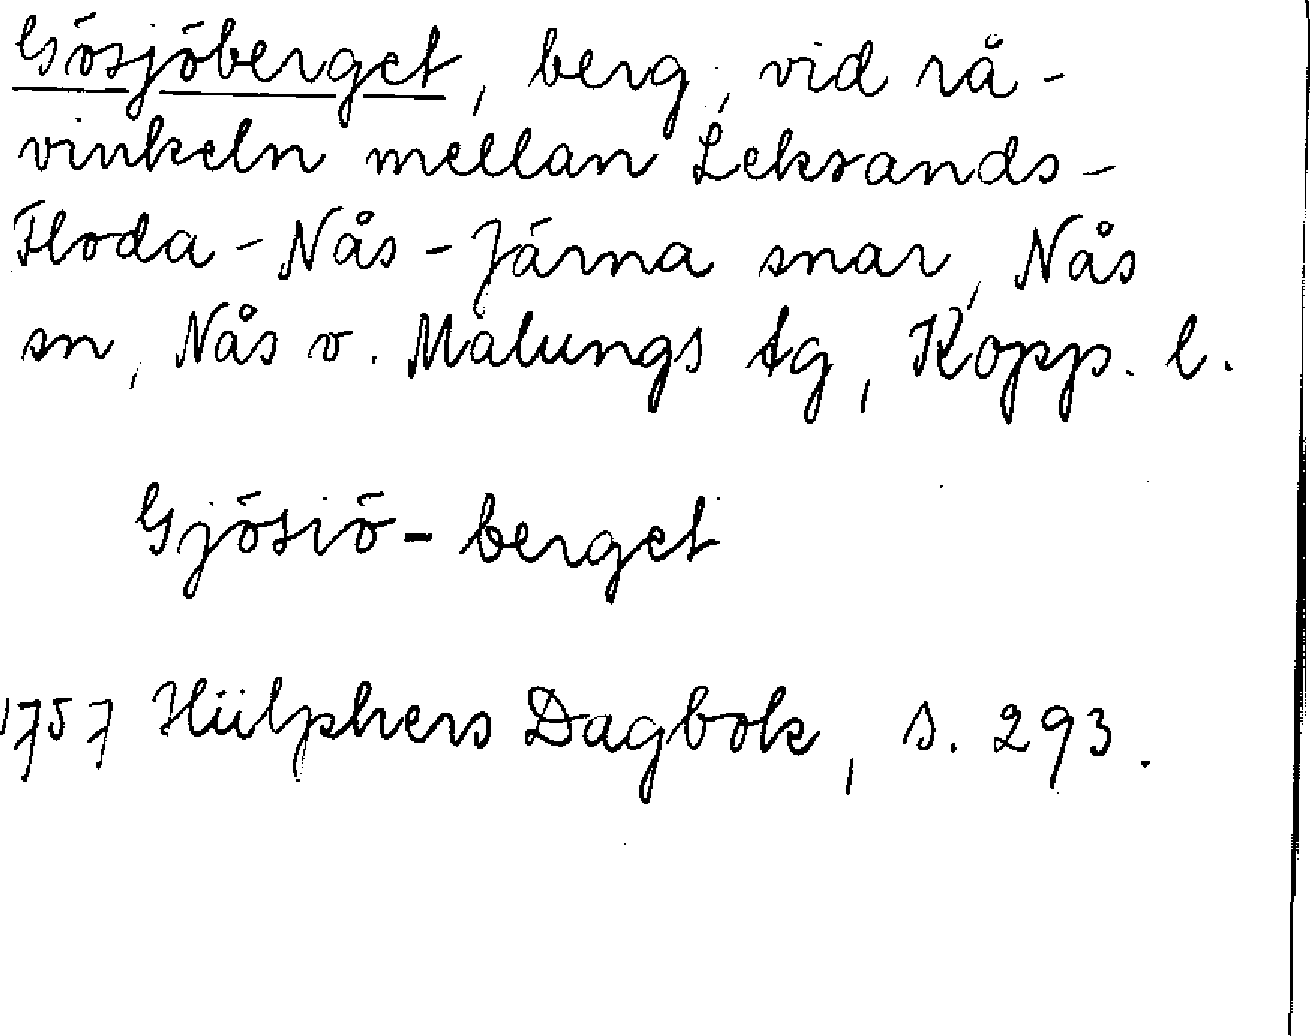 Gösjöberget, berg, vid rå-
vinkeln mellan Leksands-
Floda-Nås-Järna snar, Nås
sn, Nås o. Malungs tg, Kopp. l.
Gjösiö-berget
1757 Hülphers Dagbok, s. 293.